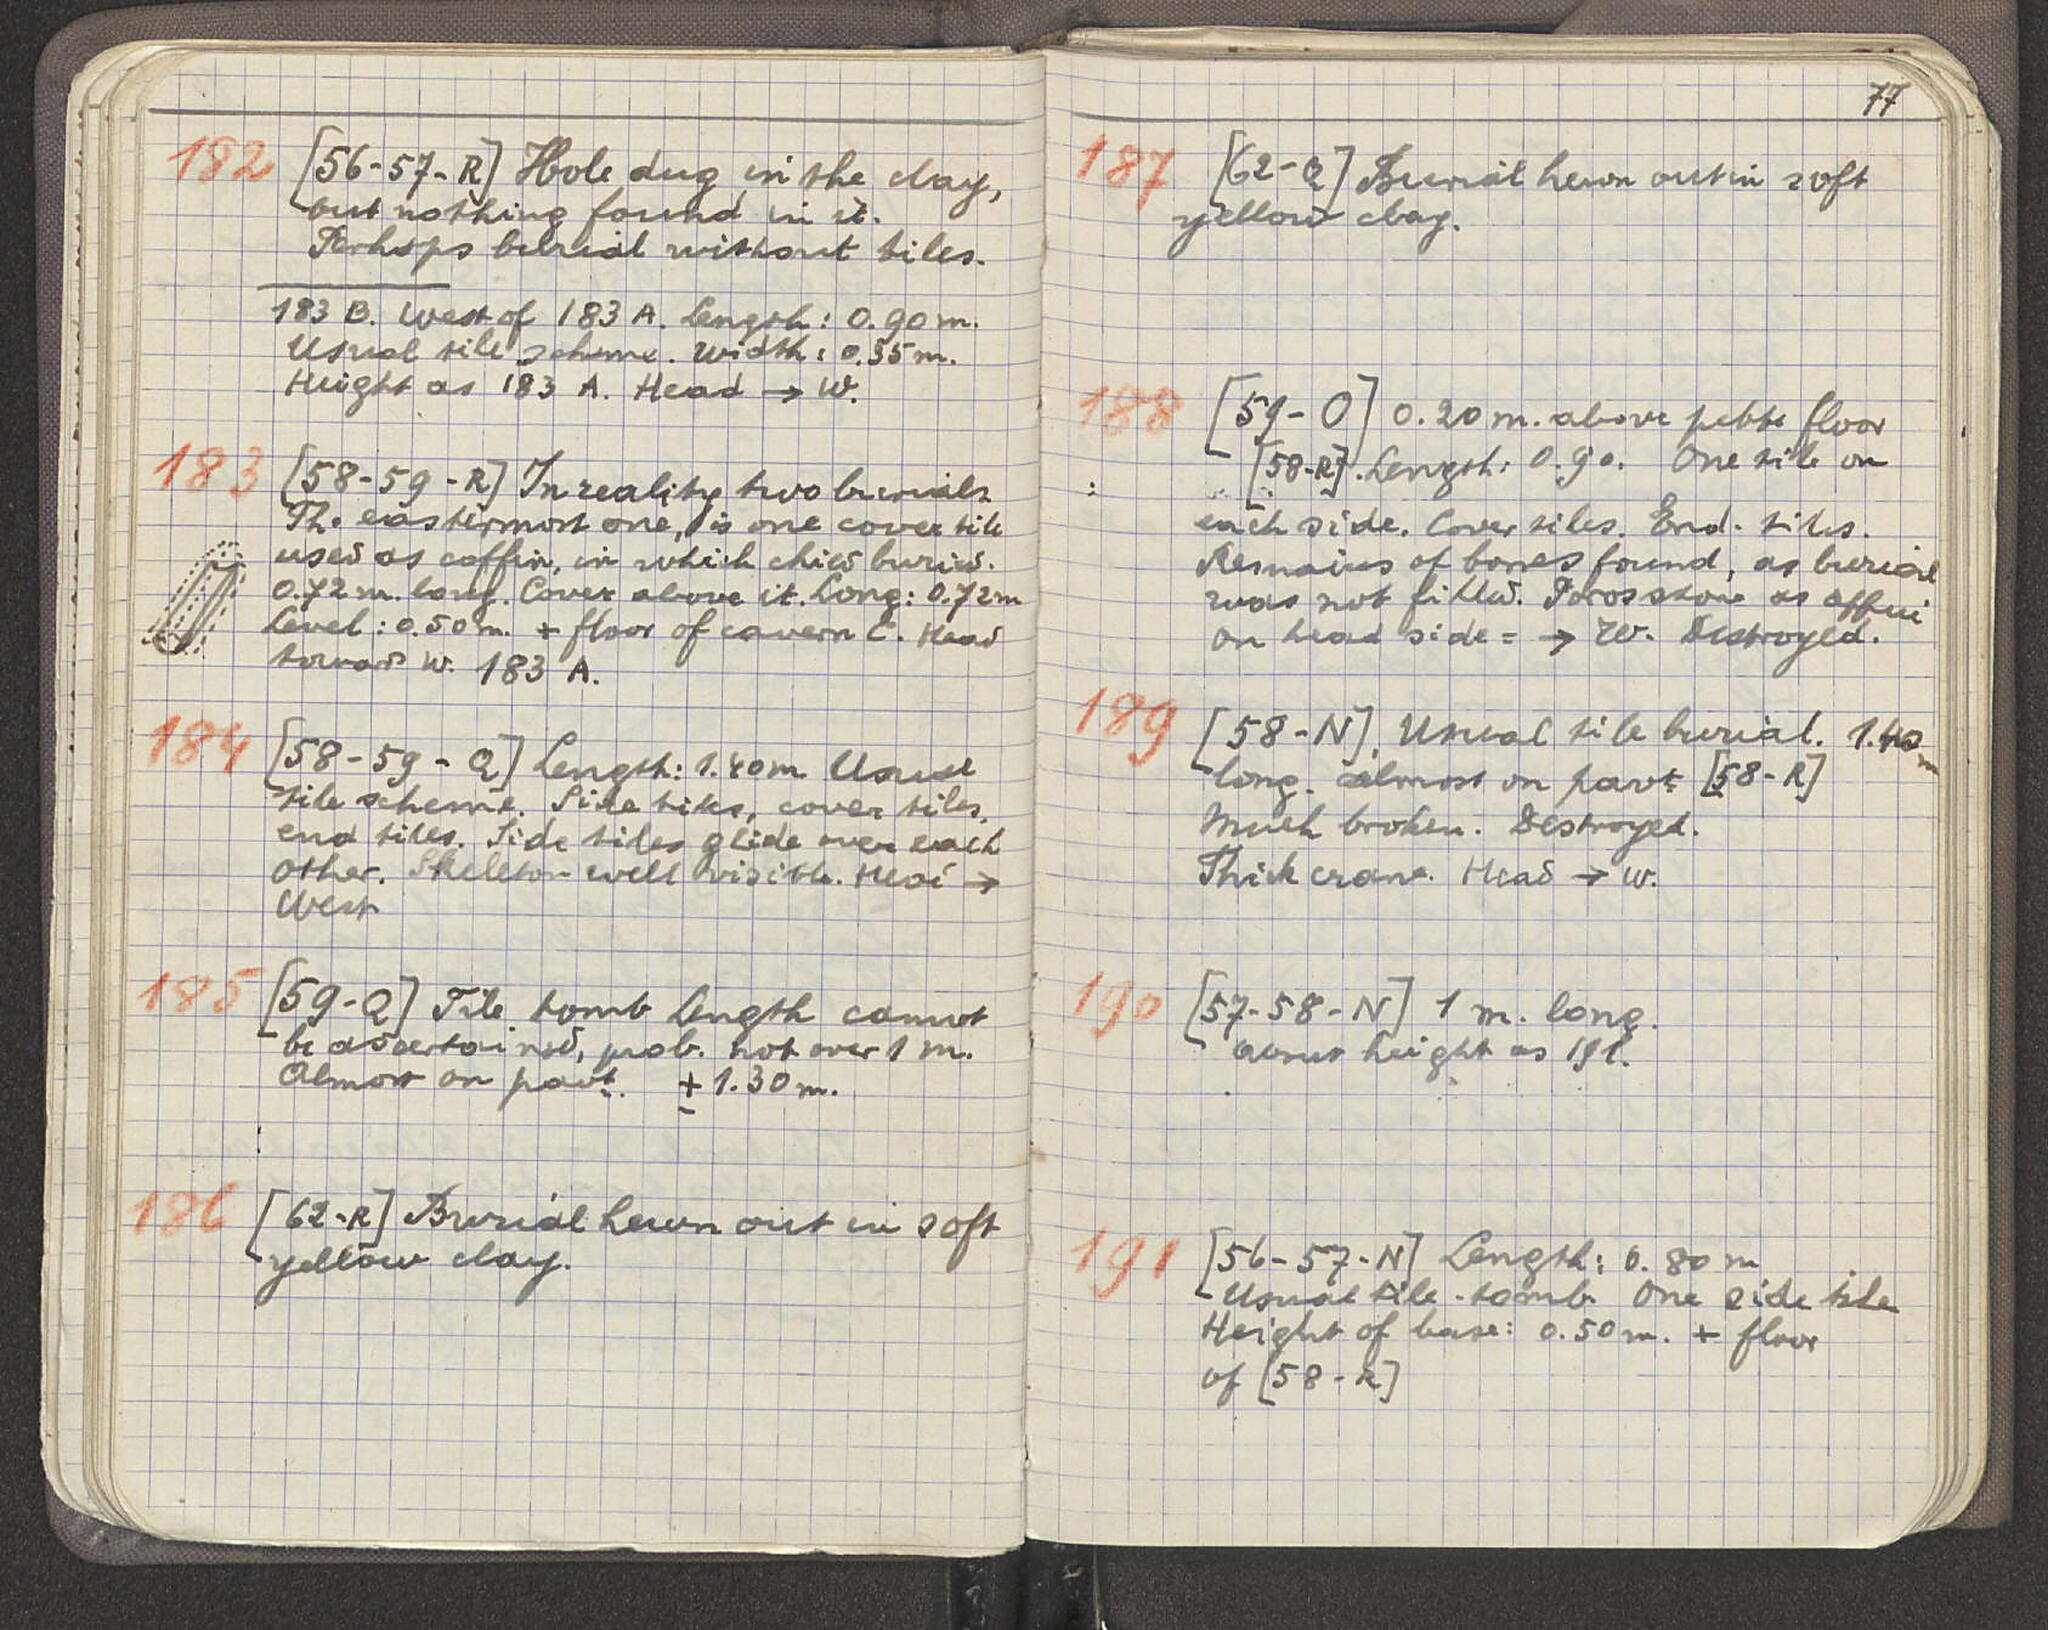 182 [56-57-R] Hole dug in the clay,
but nothing found in it.
Perhaps burial without tiles.
183 B. West of 183 A. Length: 0.90 m.
Usual tile scheme. Width: 0.35 m.
Height as 183 A. Head → W.
183 [58-59-R] In reality two burials
The easternmost one, is one cover tile
used as coffin, in which child buried.
0.72 m. long. Cover above it. Long: 0.72 m
Level: 0.50 m. + floor of cavern C. Head
toward W. 183 A.
184 [58-59-Q] Length: 1.40 m. Usual
tile scheme. Side tiles, cover tiles,
end tiles. Side tiles glide over each
other. Skeleton well visible. Head →
West
185 [59-Q] Tile tomb length cannot
be ascertained, prob. not over 1 m.
Almost on pavt. ± 1.30 m.
186 [62-R] Burial hewn out in soft
yellow clay.
77
187 [62-Q] Burial hewn out in soft
yellow clay.
188 [59-O] 0.20 m. above pebble floor
[58-R]. Length: 0.90. One tile on
each side. Cover tiles. End-tiles.
Remains of bones found, as burial
was not filled. Poros stone as
on head side = → W. Destroyed.
189 [58-N]. Usual tile burial. 1.40 m
long. almost on pavt [58-R]
Much broken. Destroyed.
Thick crane. Head → W.
190 [57-58-N] 1 m. long.
about height as 191.
191 [56-57-N] Length: 0.80 m
Usual tile-tomb. One side tile
Height of base: 0.50 m. + floor
of [58-R]